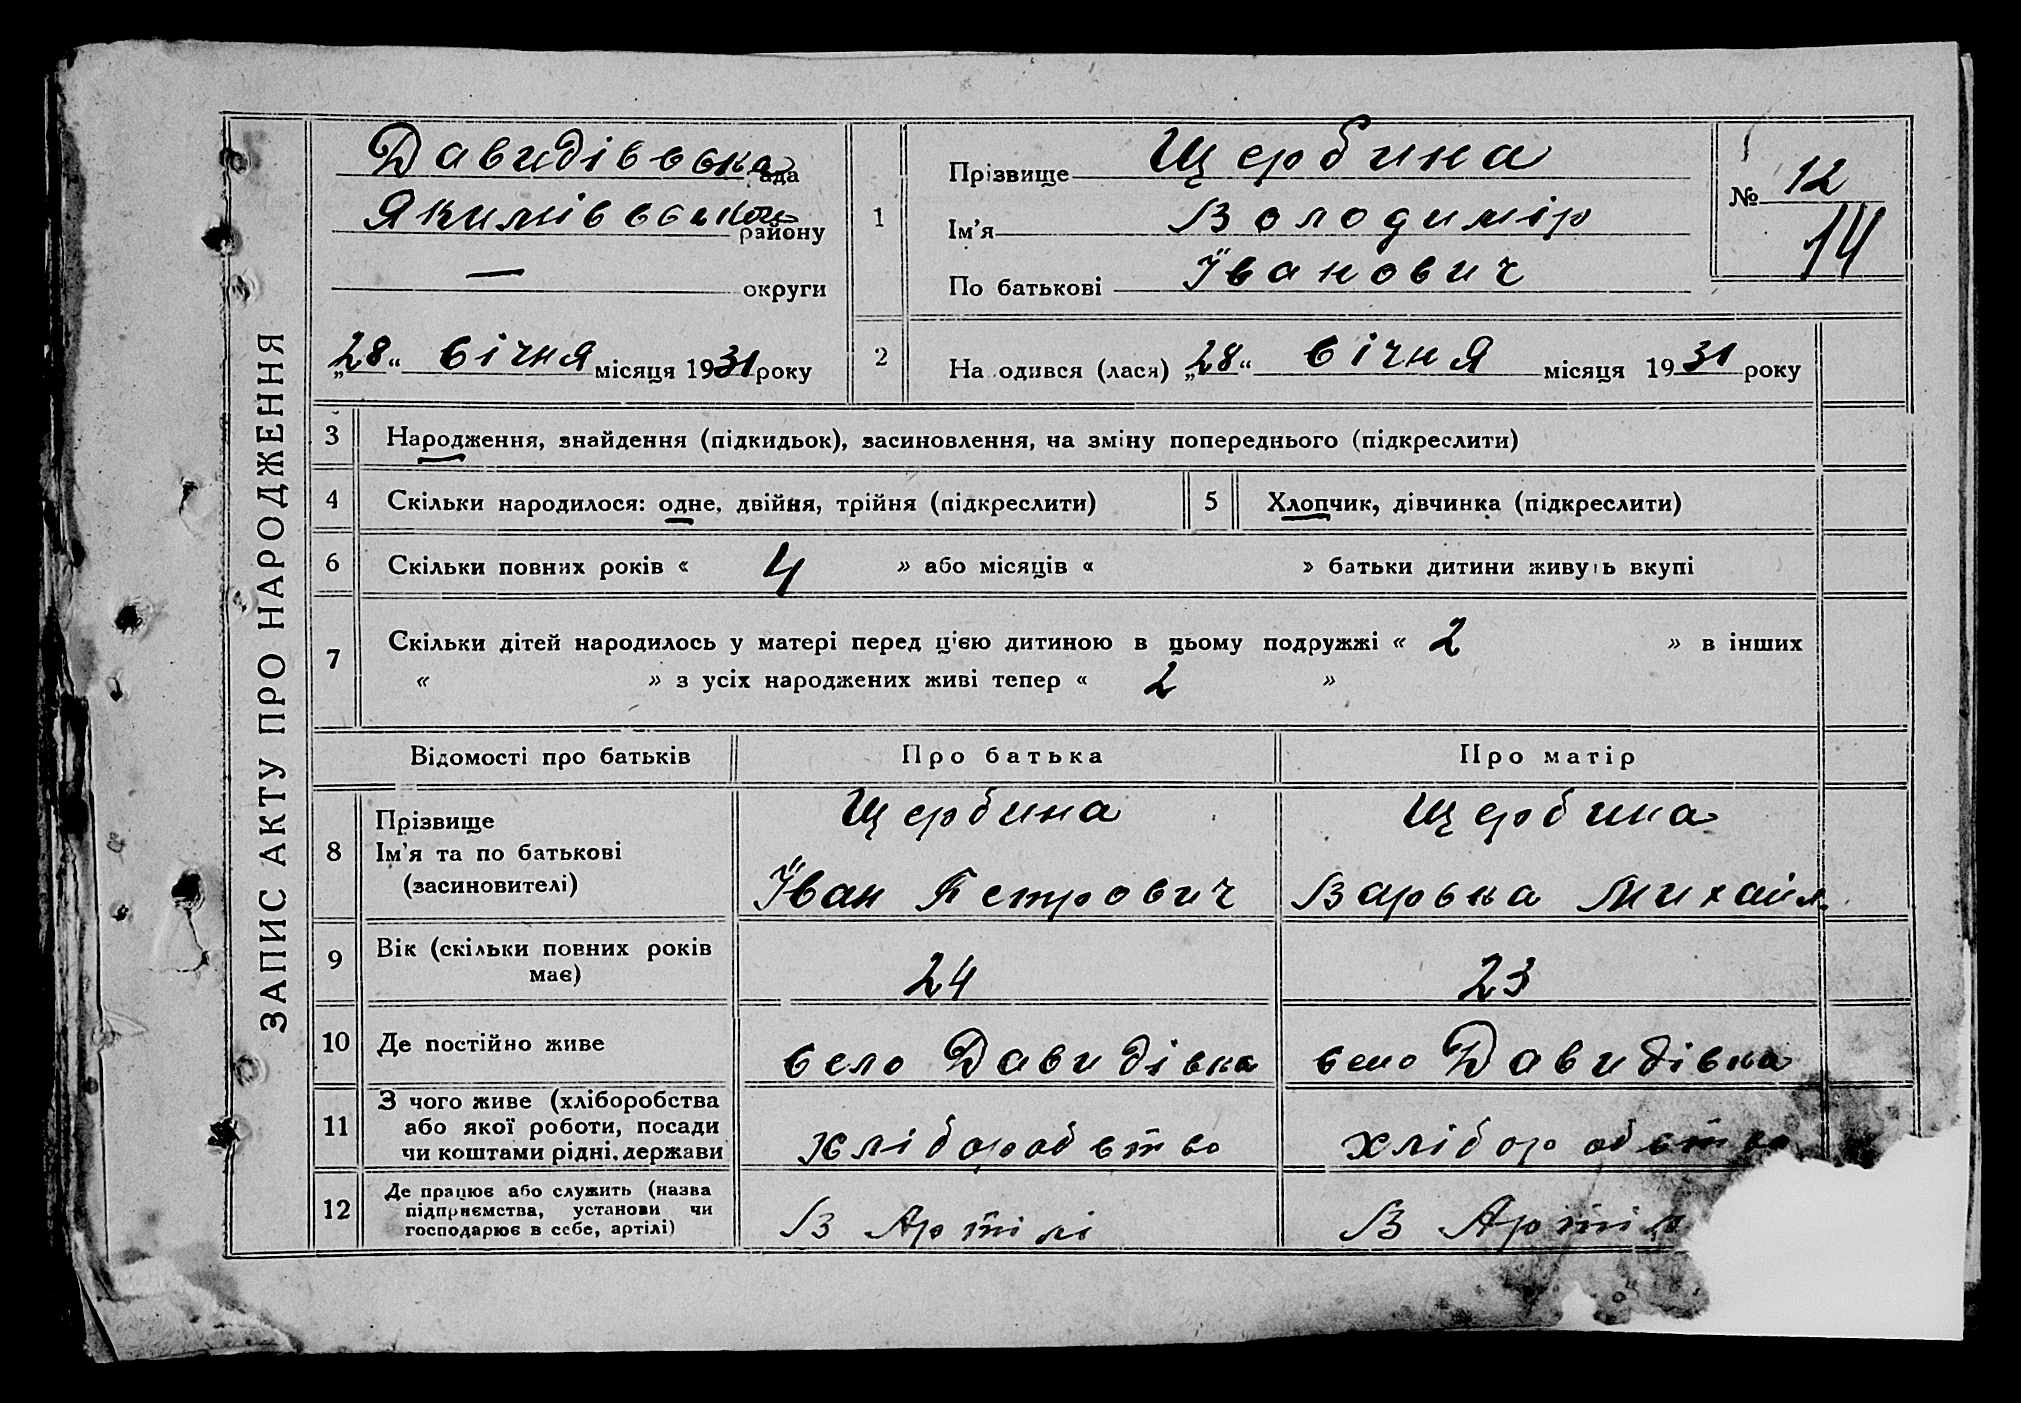 ЗАПИС АКТУ ПРО НАРОДЖЕННЯ
Давидівська рада
Якимівського району
— округи
„28“ січня місяця 1931 року
1
Прізвище Щербина
Ім’я Володимір
По батькові Іванович
№ 12
14
2
На одився (лася) „28“ січня місяця 1931 року
3 Народження, знайдення (підкидьок), засиновлення, на зміну попереднього (підкреслити)
4 Скільки народилося: одне, двійня, трійня (підкреслити) 5 Хлопчик, дівчинка (підкреслити)
6 Скільки повних років « 4 » або місяців « » батьки дитини живуть вкупі
7 Скільки дітей народилось у матері перед цією дитиною в цьому подружжі « 2 » в інших
« » з усіх народжених живі тепер « 2 »
Відомості про батьків Про батька Про матір
8 Прізвище Щербина Щербина
Ім’я та по батькові
(засиновителі) Іван Петрович Варька Михайл.
9 Вік (скільки повних років
має) 24 23
10 Де постійно живе село Давидівка село Давидівка
11 З чого живе (хліборобства
або якої роботи, посади
чи коштами рідні, держави хліборобство хліборобство
12 Де працює або служить (назва
підприємства, установи чи
господарює в себе, артілі) В Артілі В Артіл